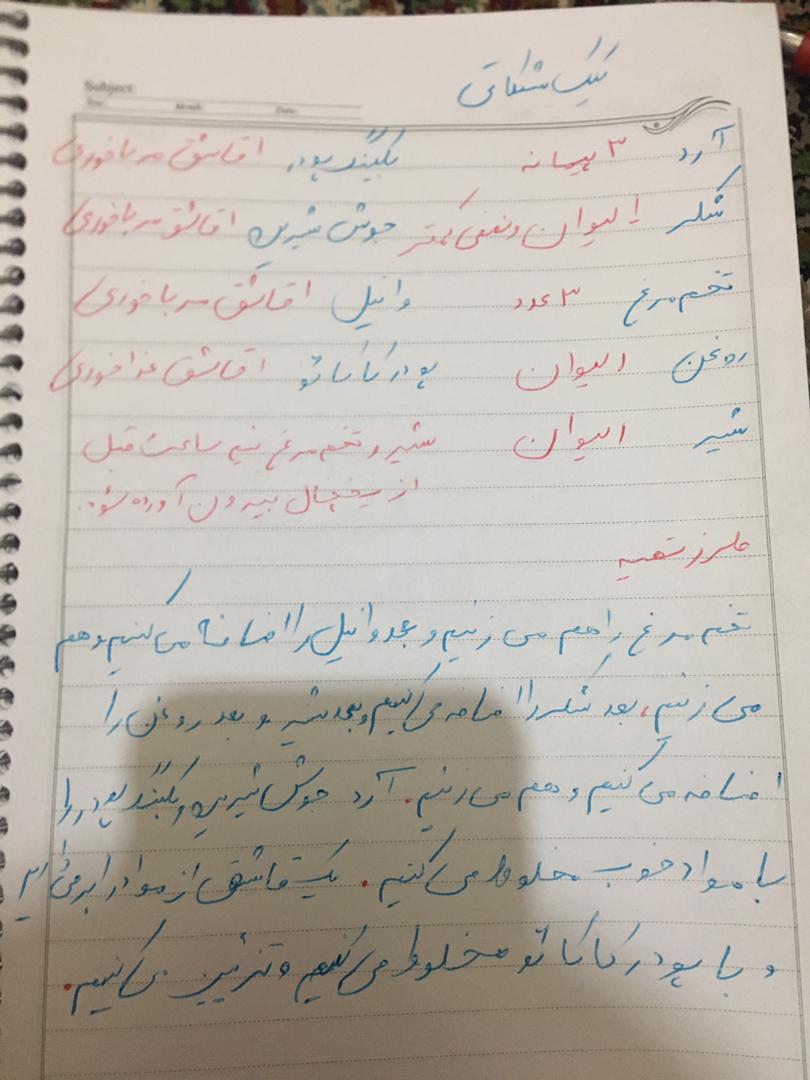 Subject:
Year: Month: Date:
کیک شکلاتی
آرد ۳ پیمانه بکینگ پودر ۱ قاشق مرباخوری
شکر ۱ لیوان و نصفی کمتر جوش شیرین ۱ قاشق مرباخوری
تخم مرغ ۳ عدد وانیل ۱ قاشق مرباخوری
روغن ۱ لیوان پودر کاکائو ۱ قاشق غذاخوری
شیر ۱ لیوان شیر و تخم مرغ نیم ساعت قبل
از یخچال بیرون آورده شود.
طرز تهیه
تخم مرغ را هم می زنیم و بعد وانیل را اضافه می کنیم و هم
می زنیم، بعد شکر را اضافه می کنیم و بعد شیر و بعد روغن را
اضافه می کنیم و هم می زنیم. آرد جوش شیرین و بکینگ پودر را
با مواد خوب مخلوط می کنیم. یک قاشق از مواد را بر می
و با پودر کاکائو مخلوط می کنیم و تزئین می کنیم.